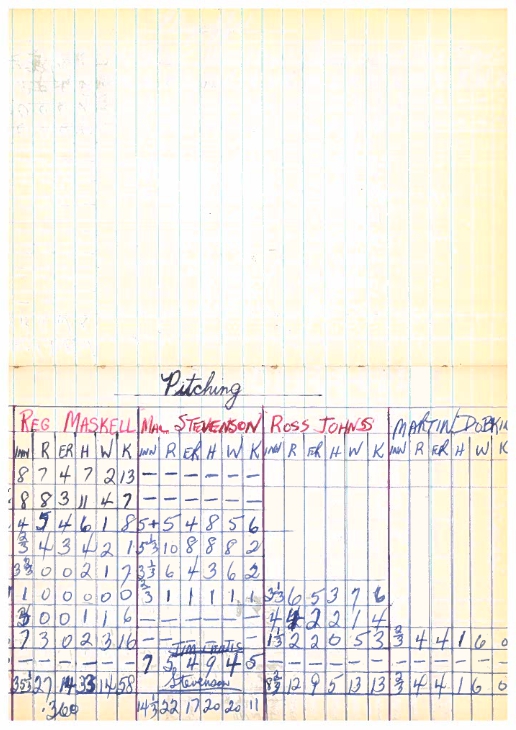 Pitching
REG MASKELL MAL. STEVENSON ROSS JOHNSS MARTIN DOBKIN
INN R ER H W K INN R ER H W K INN R ER H W K INN R ER H W K
8 7 4 7 2 13 – – – – – –
8 8 3 11 4 7 – – – – – –
4 5 4 6 1 8 5+ 5 4 8 5 6
2/3 4 3 4 2 1 5 1/3 10 8 8 8 2
3 2/3 0 0 2 1 7 3 1/3 6 4 3 6 2
1 0 0 0 0 0 2/3 1 1 1 1 1 3 1/3 6 5 3 7 6
0 0 1 1 6 – – – – – – 4 4 2 2 1 4
7 3 0 2 3 16 1 1/3 2 2 0 5 3 2/3 4 4 1 6 0
– – – – – – 7 5 4 9 4 5 – – – – – – – – – – – –
35 1/3 27 14 33 14 58 Stevenson 8 2/3 12 9 5 13 13 2/3 4 4 1 6 0
14 1/3 22 17 20 20 11